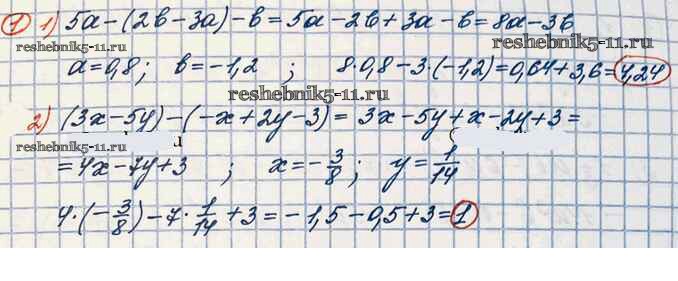 1 1) 5a-(2b-3a)-b=5a-2b+3a-b=8a-3b
reshebnik5-11.ru
a=0,8; b=-1,2 ; 8·0,8-3·(-1,2)=0,64+3,6=4,24
reshebnik5-11.ru
reshebnik5-11.ru
2) (3x-5y)-(-x+2y-3)= 3x-5y+x-2y+3=
reshebnik5-11.ru
=4x-7y+3 ; x=-3/8; y=1/14
4·(-3/8)-7·1/14+3=-1,5-0,5+3=1